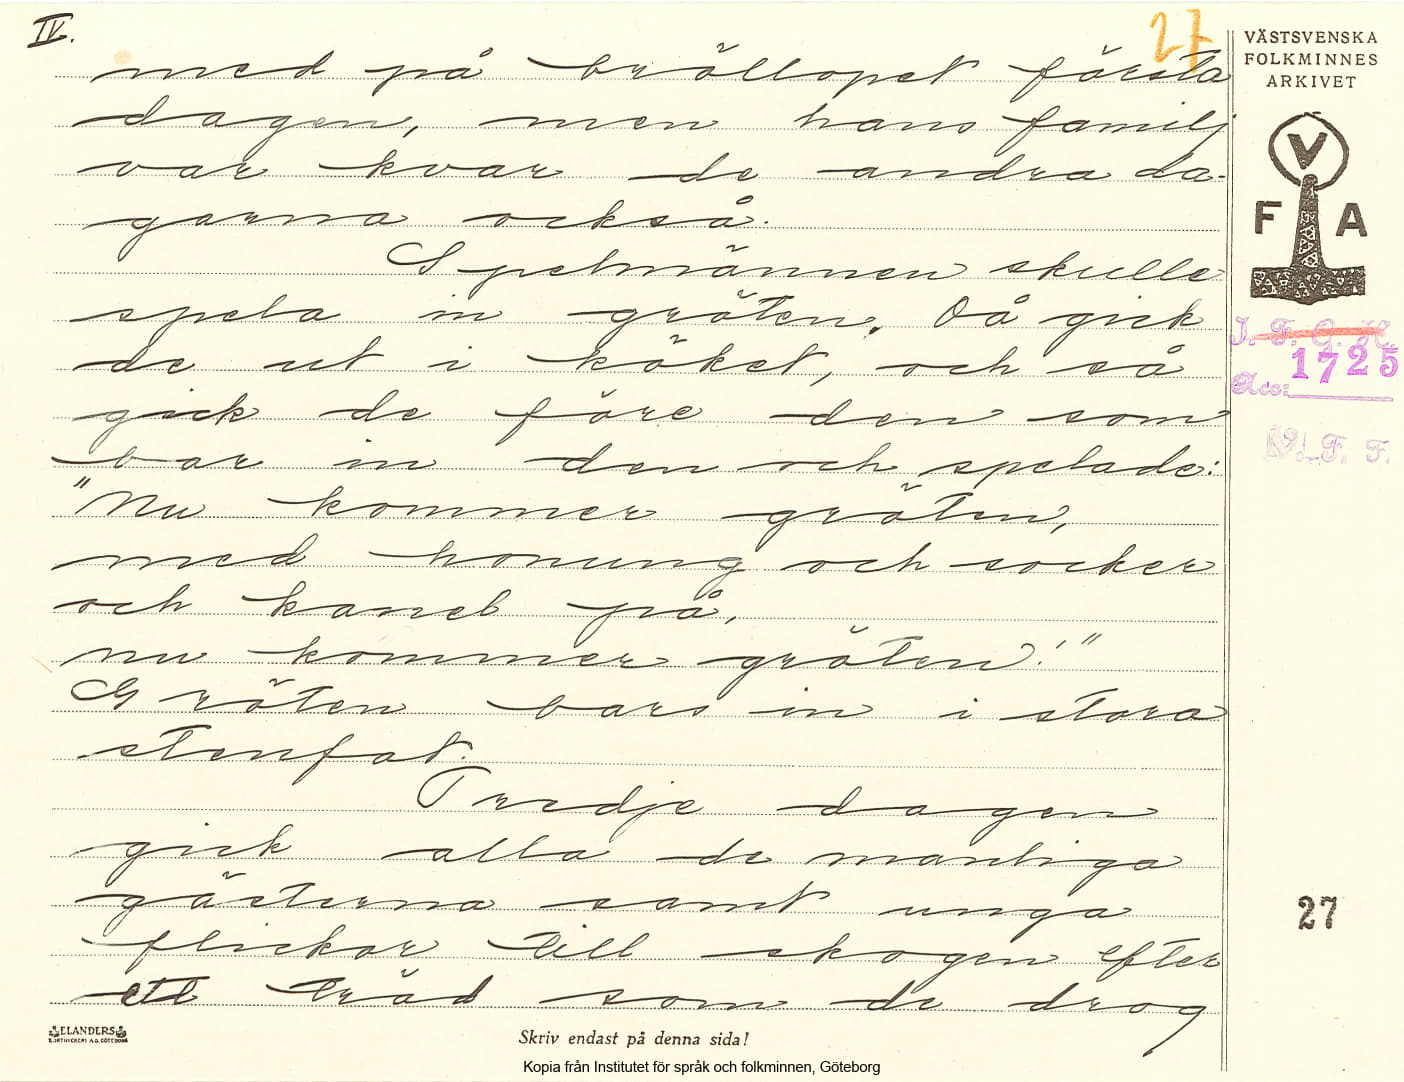 IV.
27
med på bröllopet första
dagen, men hans familj
var kvar de andra da-
garna också.
Spelmännen skulle
spela in gröten. Då gick
de ut i köket, och så
gick de före den som
bar in den och spelade:
"Nu kommer gröten,
med honung och socker
och kanel på,
nu kommer gröten!"
Gröten bars in i stora
stenfat.
Tredje dagen
gick alla de manliga
gästerna samt unga
flickor till skogen efter
ett träd som de drog
VÄSTSVENSKA
FOLKMINNES
ARKIVET
V
F A
I. F. G. H.
1725
Acc:
V. F. F.
27
ELANDERS
Skriv endast på denna sida!
Kopia från Institutet för språk och folkminnen, Göteborg